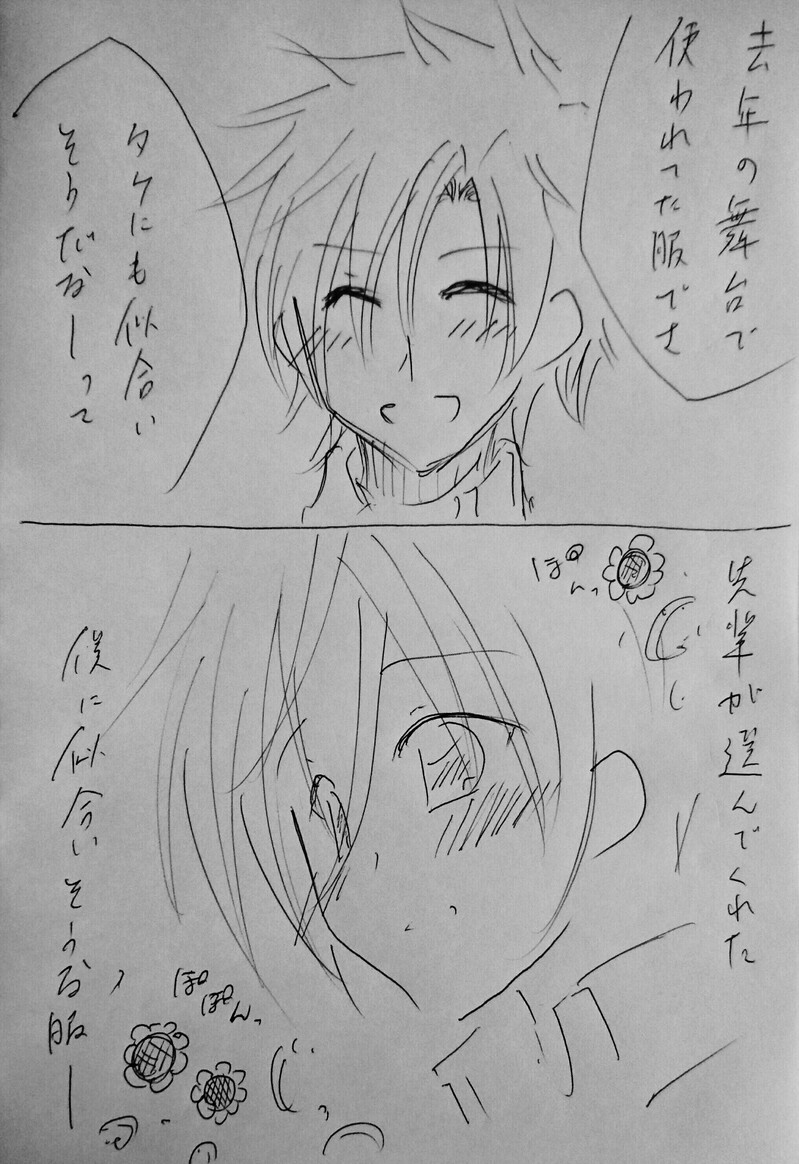 去年の舞台で
使われてた服でさ
タケにも似合い
そうだなーって
先輩が選んでくれた
ぽんっ
僕に似合いそうな服―
ぽぽんっ